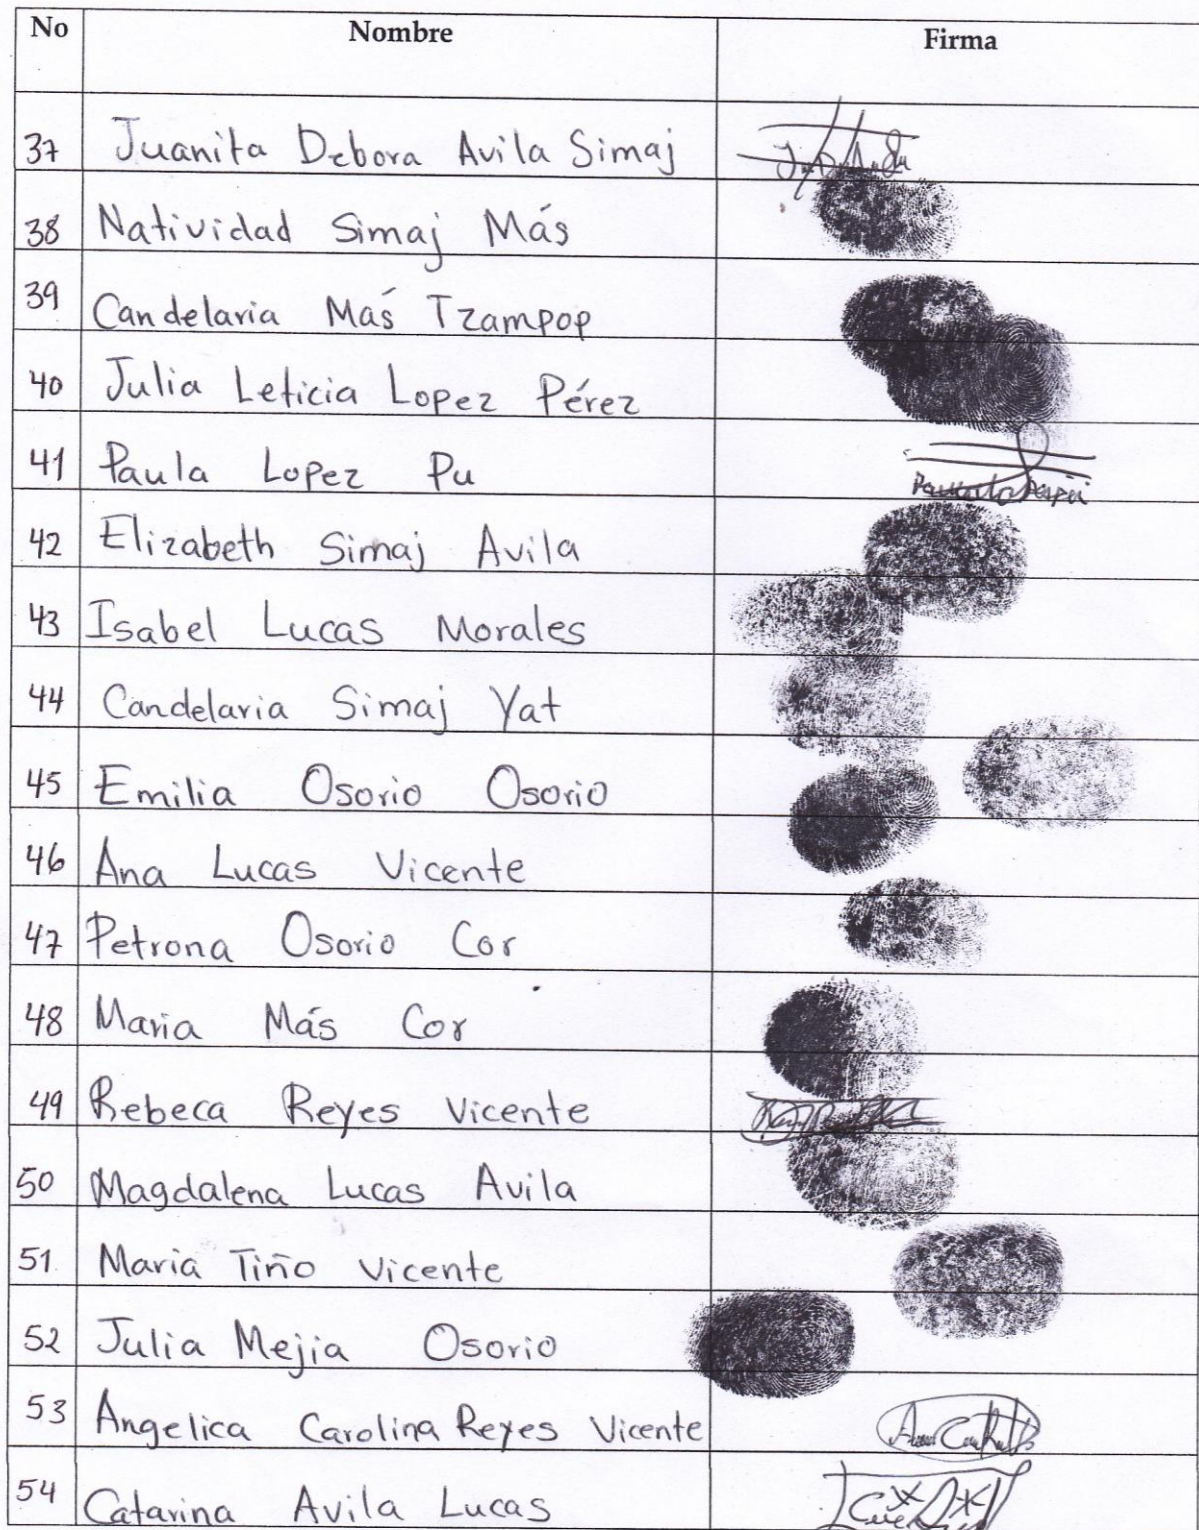 No Nombre Firma
37 Juanita Debora Avila Simaj
38 Natividad Simaj Más
39 Candelaria Más Tzampop
40 Julia Leticia Lopez Pérez
41 Paula Lopez Pu
42 Elizabeth Simaj Avila
43 Isabel Lucas Morales
44 Candelaria Simaj Yat
45 Emilia Osorio Osorio
46 Ana Lucas Vicente
47 Petrona Osorio Cor
48 Maria Más Cor
49 Rebeca Reyes Vicente
50 Magdalena Lucas Avila
51 Maria Tiño Vicente
52 Julia Mejia Osorio
53 Angelica Carolina Reyes Vicente
54 Catarina Avila Lucas